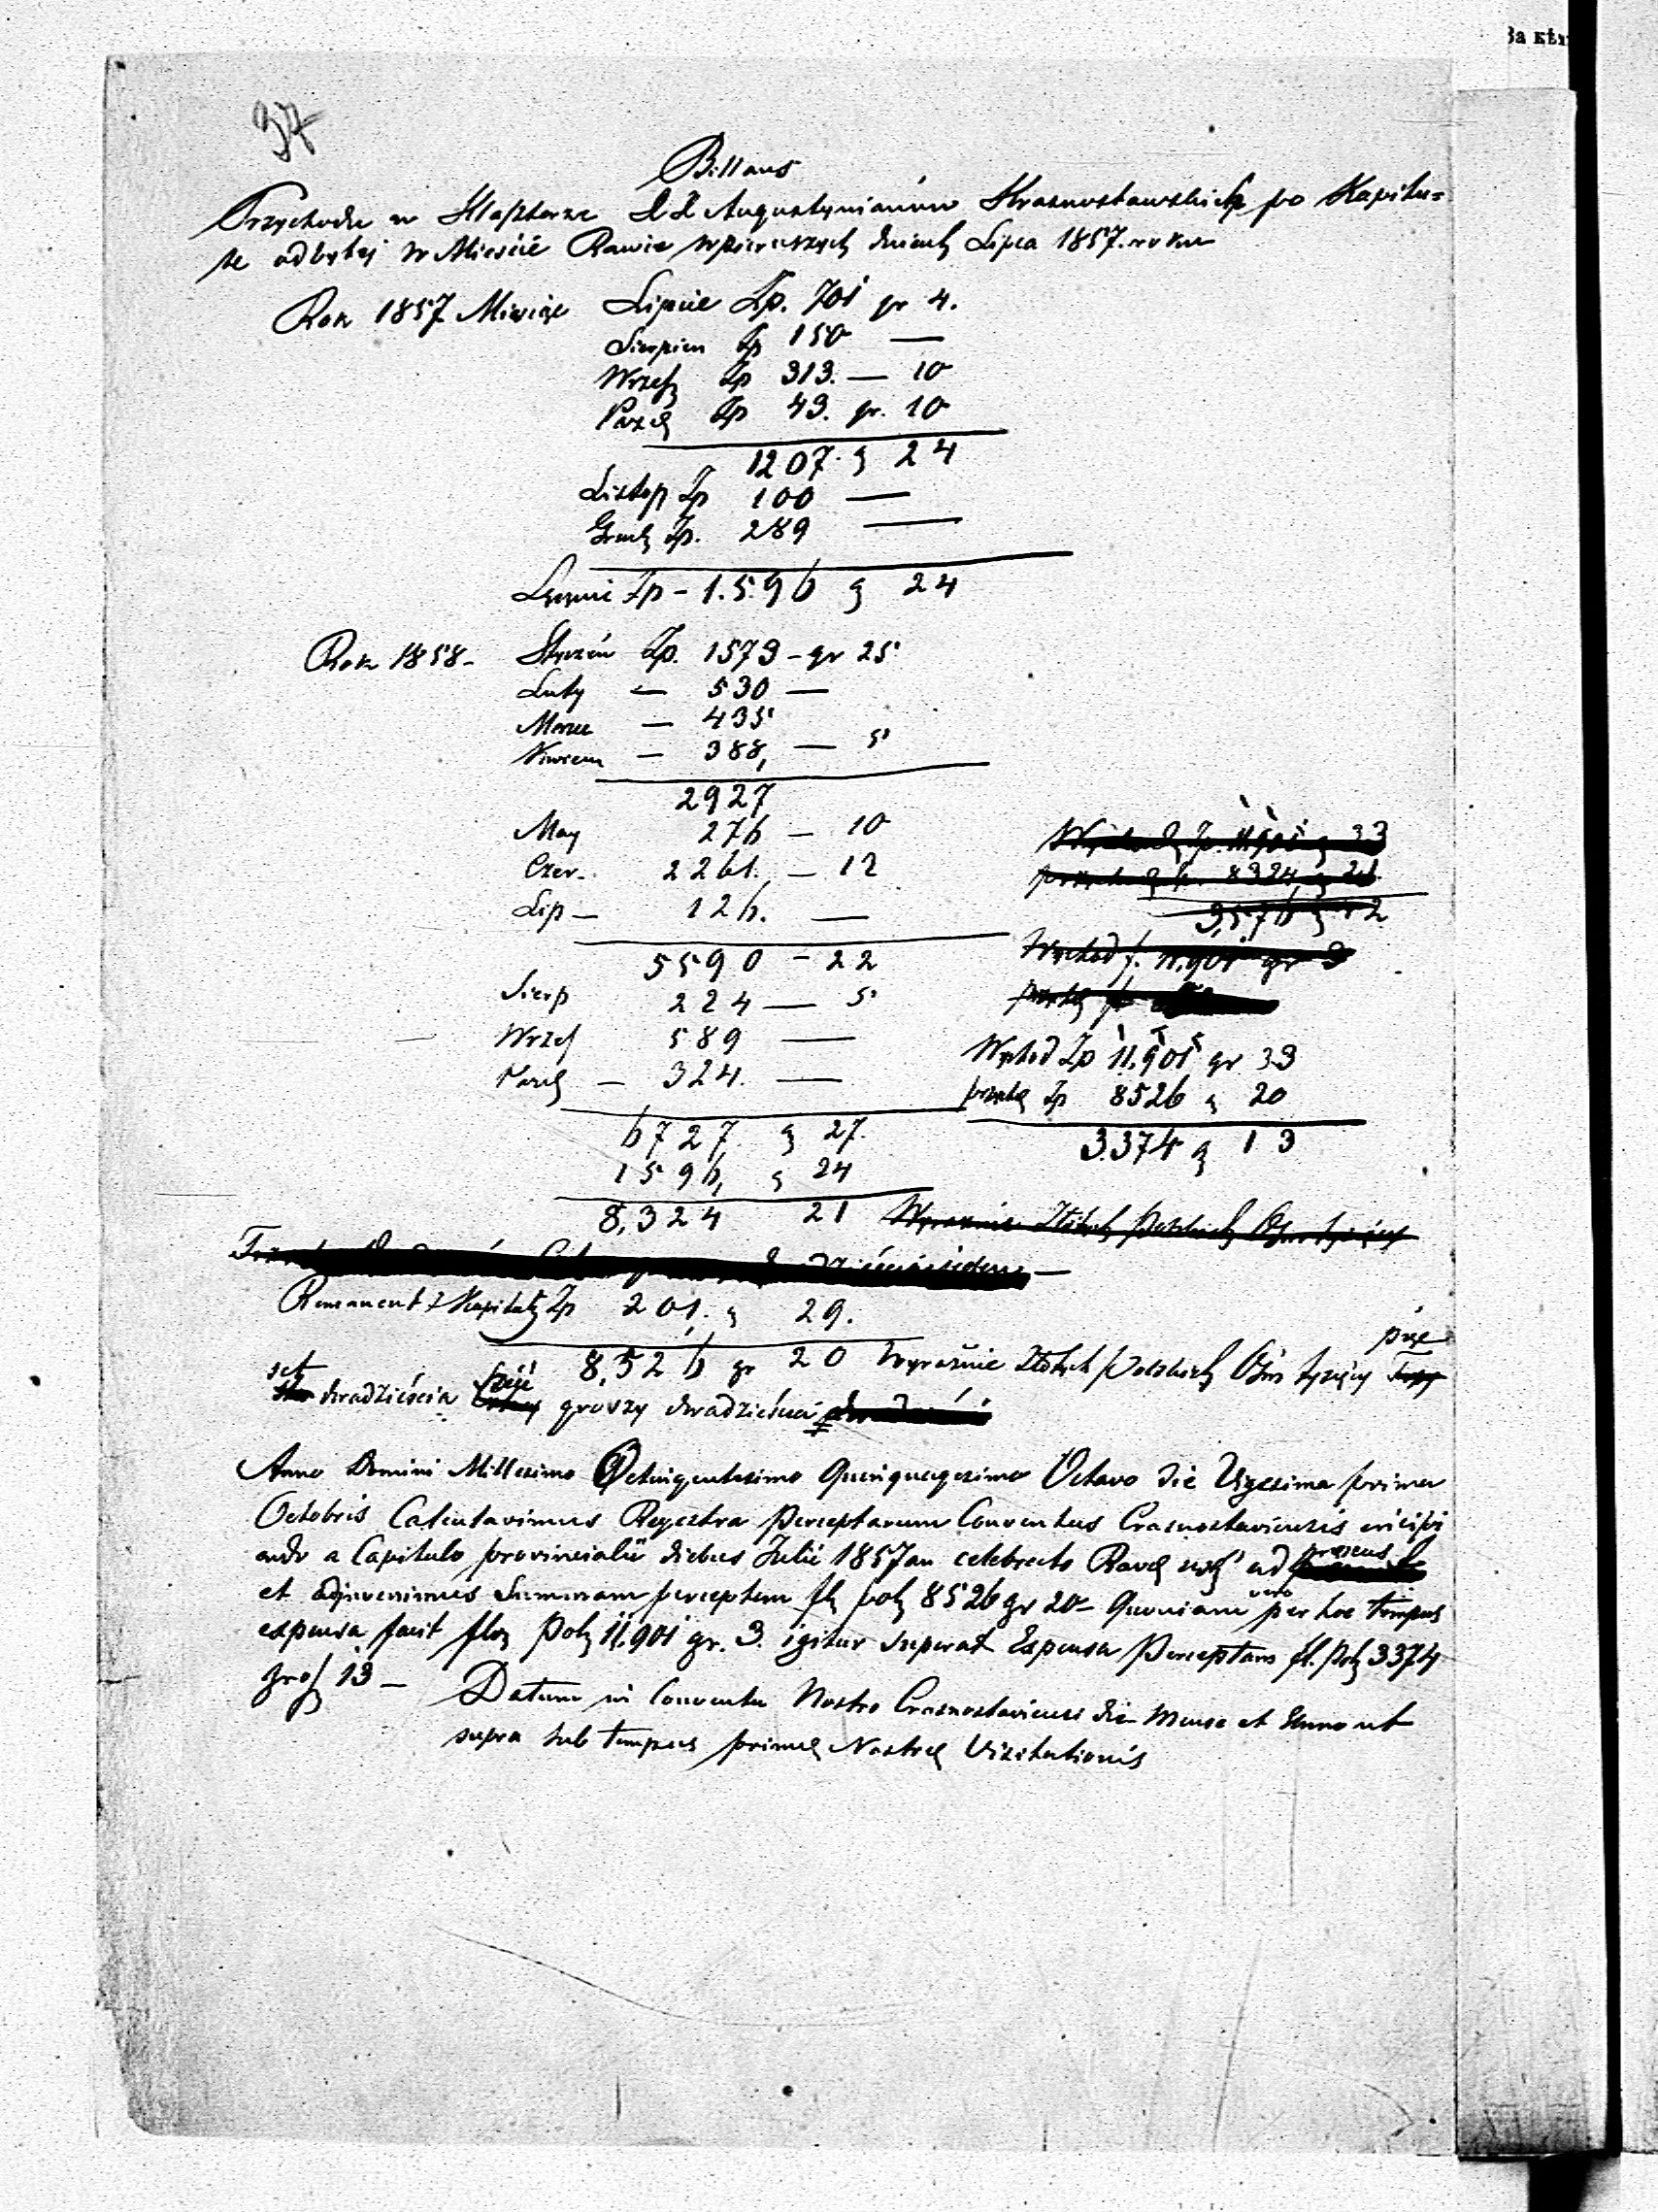 За кѣм
37
Billans
Przychodu w Klasztorze XX Augustynianów Krasnostawskich po Kapitu=
le odbytej w Mieście Rawie w pierwszych dniach Lipca 1857. roku
Rok 1857 Miesiąc Lipiec Zp. 701 gr 4.
Sierpień Zp 150 —
Wrześ Zp 313. — 10
Paźd Zp 43. gr. 10
1207. g 24
Listop Zp 100 —
Grud Zp. 289 —
Łącznie Zp - 1.596 g 24
Rok 1858 - Styczeń Zp. 1573 - gr 25
Luty — 530 —
Marzec — 435
Kwiecień — 388, — 5
2927
May 276 — 10
Czer. 2261. — 12
Lip — 126. —
5590 - 22
Sierp 224 — 5
Wrześ 589 —
Paźd — 324. —
6727. g 27.
1596, g 24
8,324 21 Wyraźnie Złotych Polskich Ośm tysięcy
Wychod Zp. 11,901 g 33
przychod Zp. 8324 g 21.
3,576 g 12
Wychod f. 11,901 gr 3
Wychod Zp 11,901 gr 33
przych Zp 8526 g 20
3.374 g 13
Remanent z Kapituły Zp 201. g 29.
8,526 gr 20 wyraźnie Złotych Polskich Ośm tysięcy pięć
set dwadzieścia sześć groszy dwadzieścia
Anno Domini Millesimo Octingentesimo Quinquagesimo Octavo die Vigesima prima
Octobris Calculavimus Regestra Perceptarum Conventus Crasnostaviensis incipi
endo a Capitulo provinciali diebus Julii 1857 an celebrato Ravæ usq ad præsens
et adinvenimus Summam perceptam fl pol 8526 gr 20 - Quoniam vero per hoc tempus
expensa facit flor Pol 11,901 gr. 3. igitur superat Expensa Perceptam fl. Pol 3374
gros 13 — Datum in Conventu Nostro Crasnostaviensi die Mense et Anno ut
supra sub tempus primæ Nostræ Visitationis